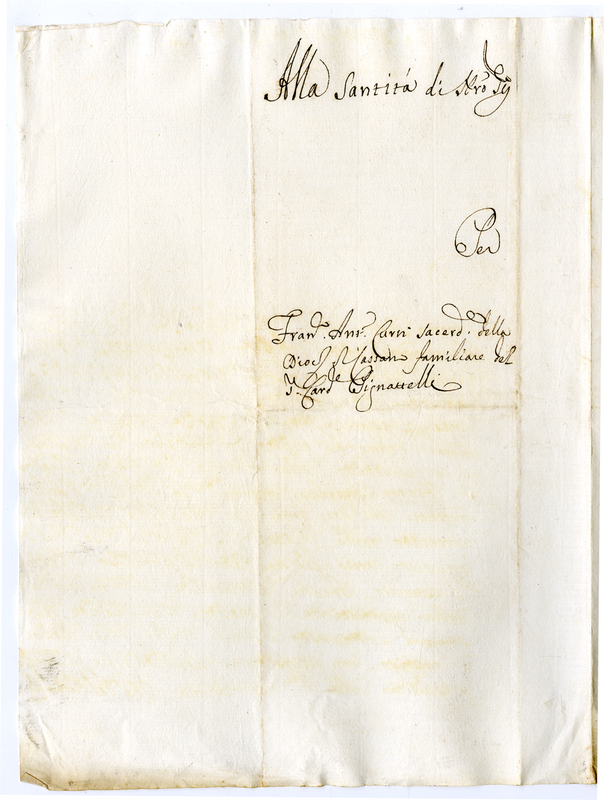 Alla Santitá di Nro Sig
Per
Fran. Ant. Curti Sacerd. della
Dioc. di Cassano familiare del
S. Card. Pignattelli